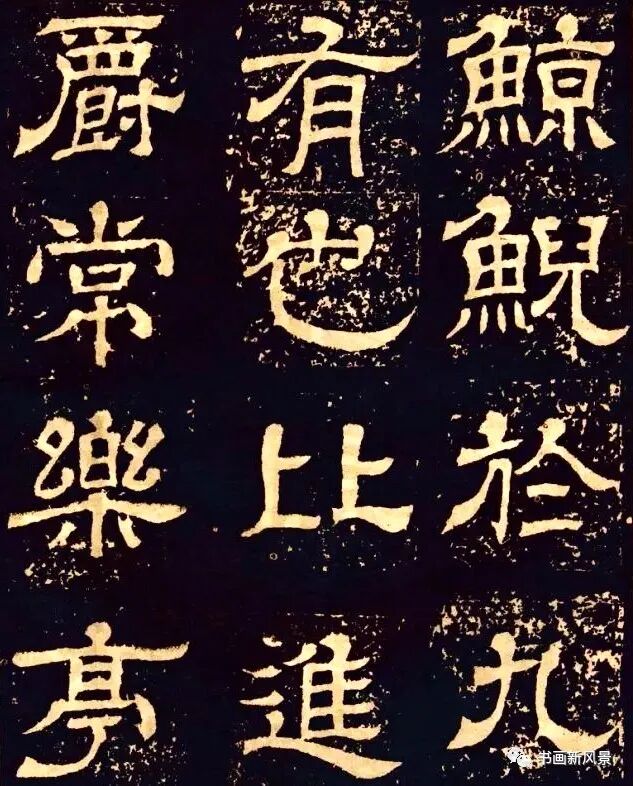 鯨鯢於九
有也比進
爵常樂亭
书画新风景